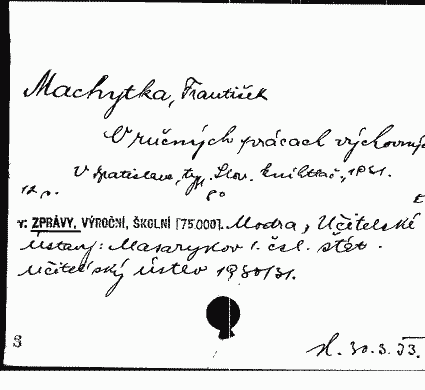 Machytka, František
O ručných prácach výchovných
V Bratislave, typ. Slov. Knihtlač., 1931.
12 p. 8°
v: ZPRÁVY, VÝROČNÍ, ŠKOLNÍ [75000]. Modra, Učitelské
ústavy: Masarykov 1. čsl. stát.
učitelský ústav 1930/31.
S
30.3.33.